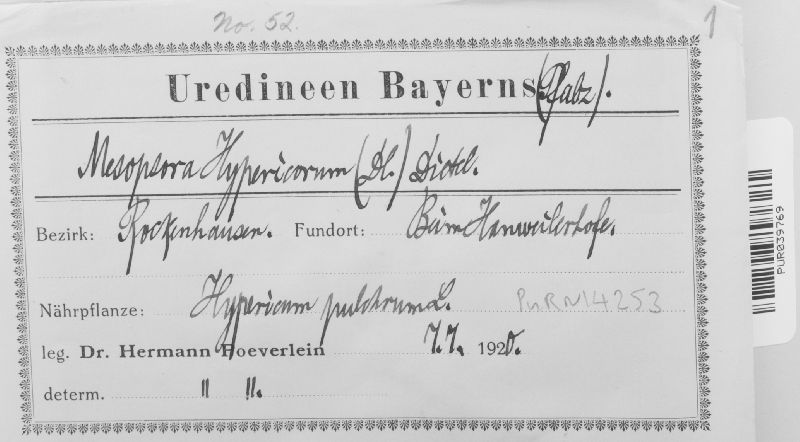 No. 52.
1
Uredineen Bayerns (Pfalz).
Mesopsora Hypericorum (Dl.) Dietel.
Bezirk: Rockenhausen. Fundort: Beim Hanweilerhofe.
Nährpflanze: Hypericum pulchrum L. PUR N14253
leg. Dr. Hermann Poeverlein 7.7. 1920.
determ. " ".
PUR039769